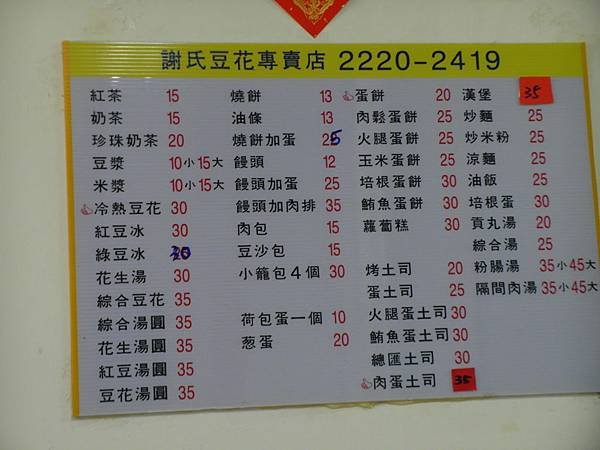 謝氏豆花專賣店 2220-2419
紅茶 15
奶茶 15
珍珠奶茶 20
豆漿 10小15大
米漿 10小15大
冷熱豆花 30
紅豆冰 30
綠豆冰
花生湯 30
綜合豆花 35
綜合湯圓 35
花生湯圓 35
紅豆湯圓 35
豆花湯圓 35
燒餅 13
油條 13
燒餅加蛋 25
饅頭 12
饅頭加蛋 25
饅頭加肉排 35
肉包 15
豆沙包 15
小籠包4個 30
荷包蛋一個 10
葱蛋 20
蛋餅 20
肉鬆蛋餅 25
火腿蛋餅 25
玉米蛋餅 25
培根蛋餅 30
鮪魚蛋餅 30
蘿蔔糕 30
烤土司 20
蛋土司 25
火腿蛋土司 30
鮪魚蛋土司 30
總匯土司 30
肉蛋土司 35
漢堡 35
炒麵 25
炒米粉 25
涼麵 25
油飯 25
培根蛋 30
貢丸湯 20
綜合湯 25
粉腸湯 35小45大
隔間肉湯 35小45大